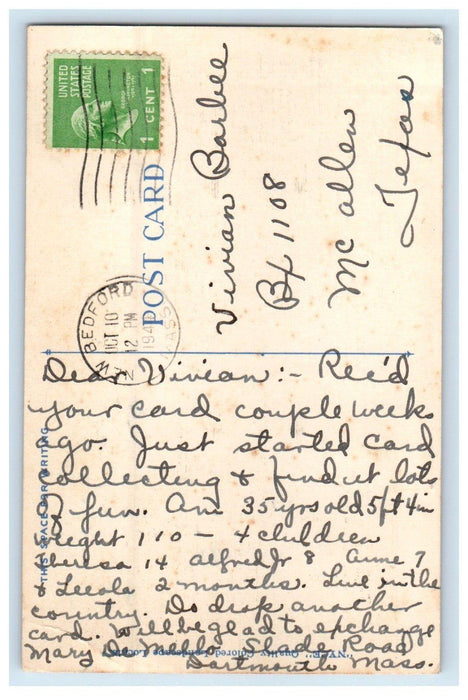 UNITED
STATES
POSTAGE
1 CENT 1
POST CARD
NEW BEDFORD MASS
OCT 10
12 PM
Vivian Barbee
Bx 1108
McAllen
Texas
Dear Vivian:- Rec'd
your card couple weeks
ago. Just started card
collecting & find it lots
of fun. Am 35 yrs old 5ft 4in
weight 110 - 4 children
Theresa 14 Alfred Jr 8 Anne 7
& 2 months. Live in the
country. Do drop another
card. Will be glad to exchange
Mary D. Mello Road
Dartmouth Mass.
THIS SPACE FOR WRITING
Quality Colored